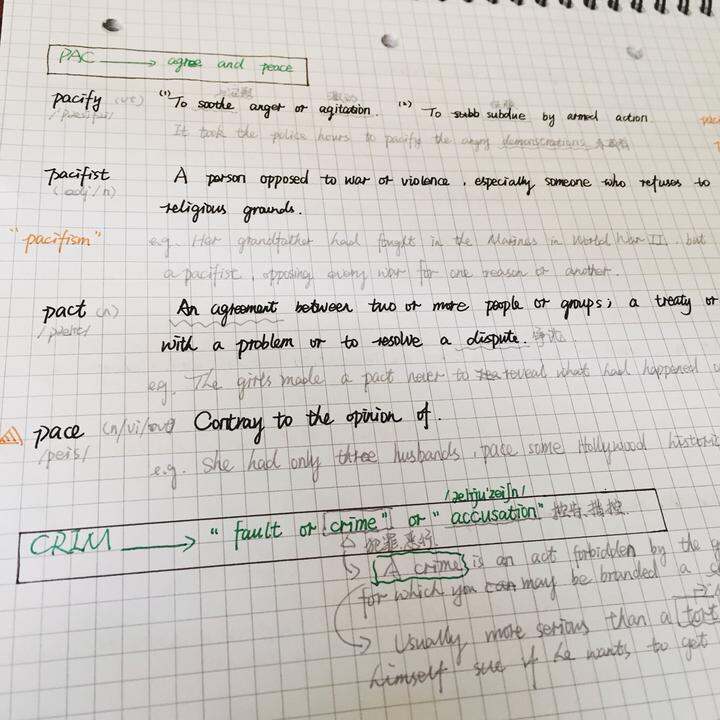 PAC → agree and peace
pacify (vt) (1) To soothe anger or agitation. (2) To subdue by armed action
It took the police hours to pacify the angry demonstrations
pacifist A person opposed to war or violence, especially someone who refuses to
(adj/n) religious grounds.
"pacifism" e.g. Her grandfather had fought in the Marines in World War II, but
a pacifist, opposing every war for one reason or another.
pact (n) An agreement between two or more people or groups; a treaty or
/pækt/ with a problem or to resolve a dispute. 争论
eg. The girls made a pact never to reveal what had happened
pace (n/vi/vt) Contray to the opinion of.
/peis/ e.g. She had only three husbands, pace some Hollywood
CRIM → "fault or crime" or "accusation" 指控
犯罪
A crime is an act forbidden by the
for which you can may be branded a
Usually more serious than a tort
himself sue if he wants to get